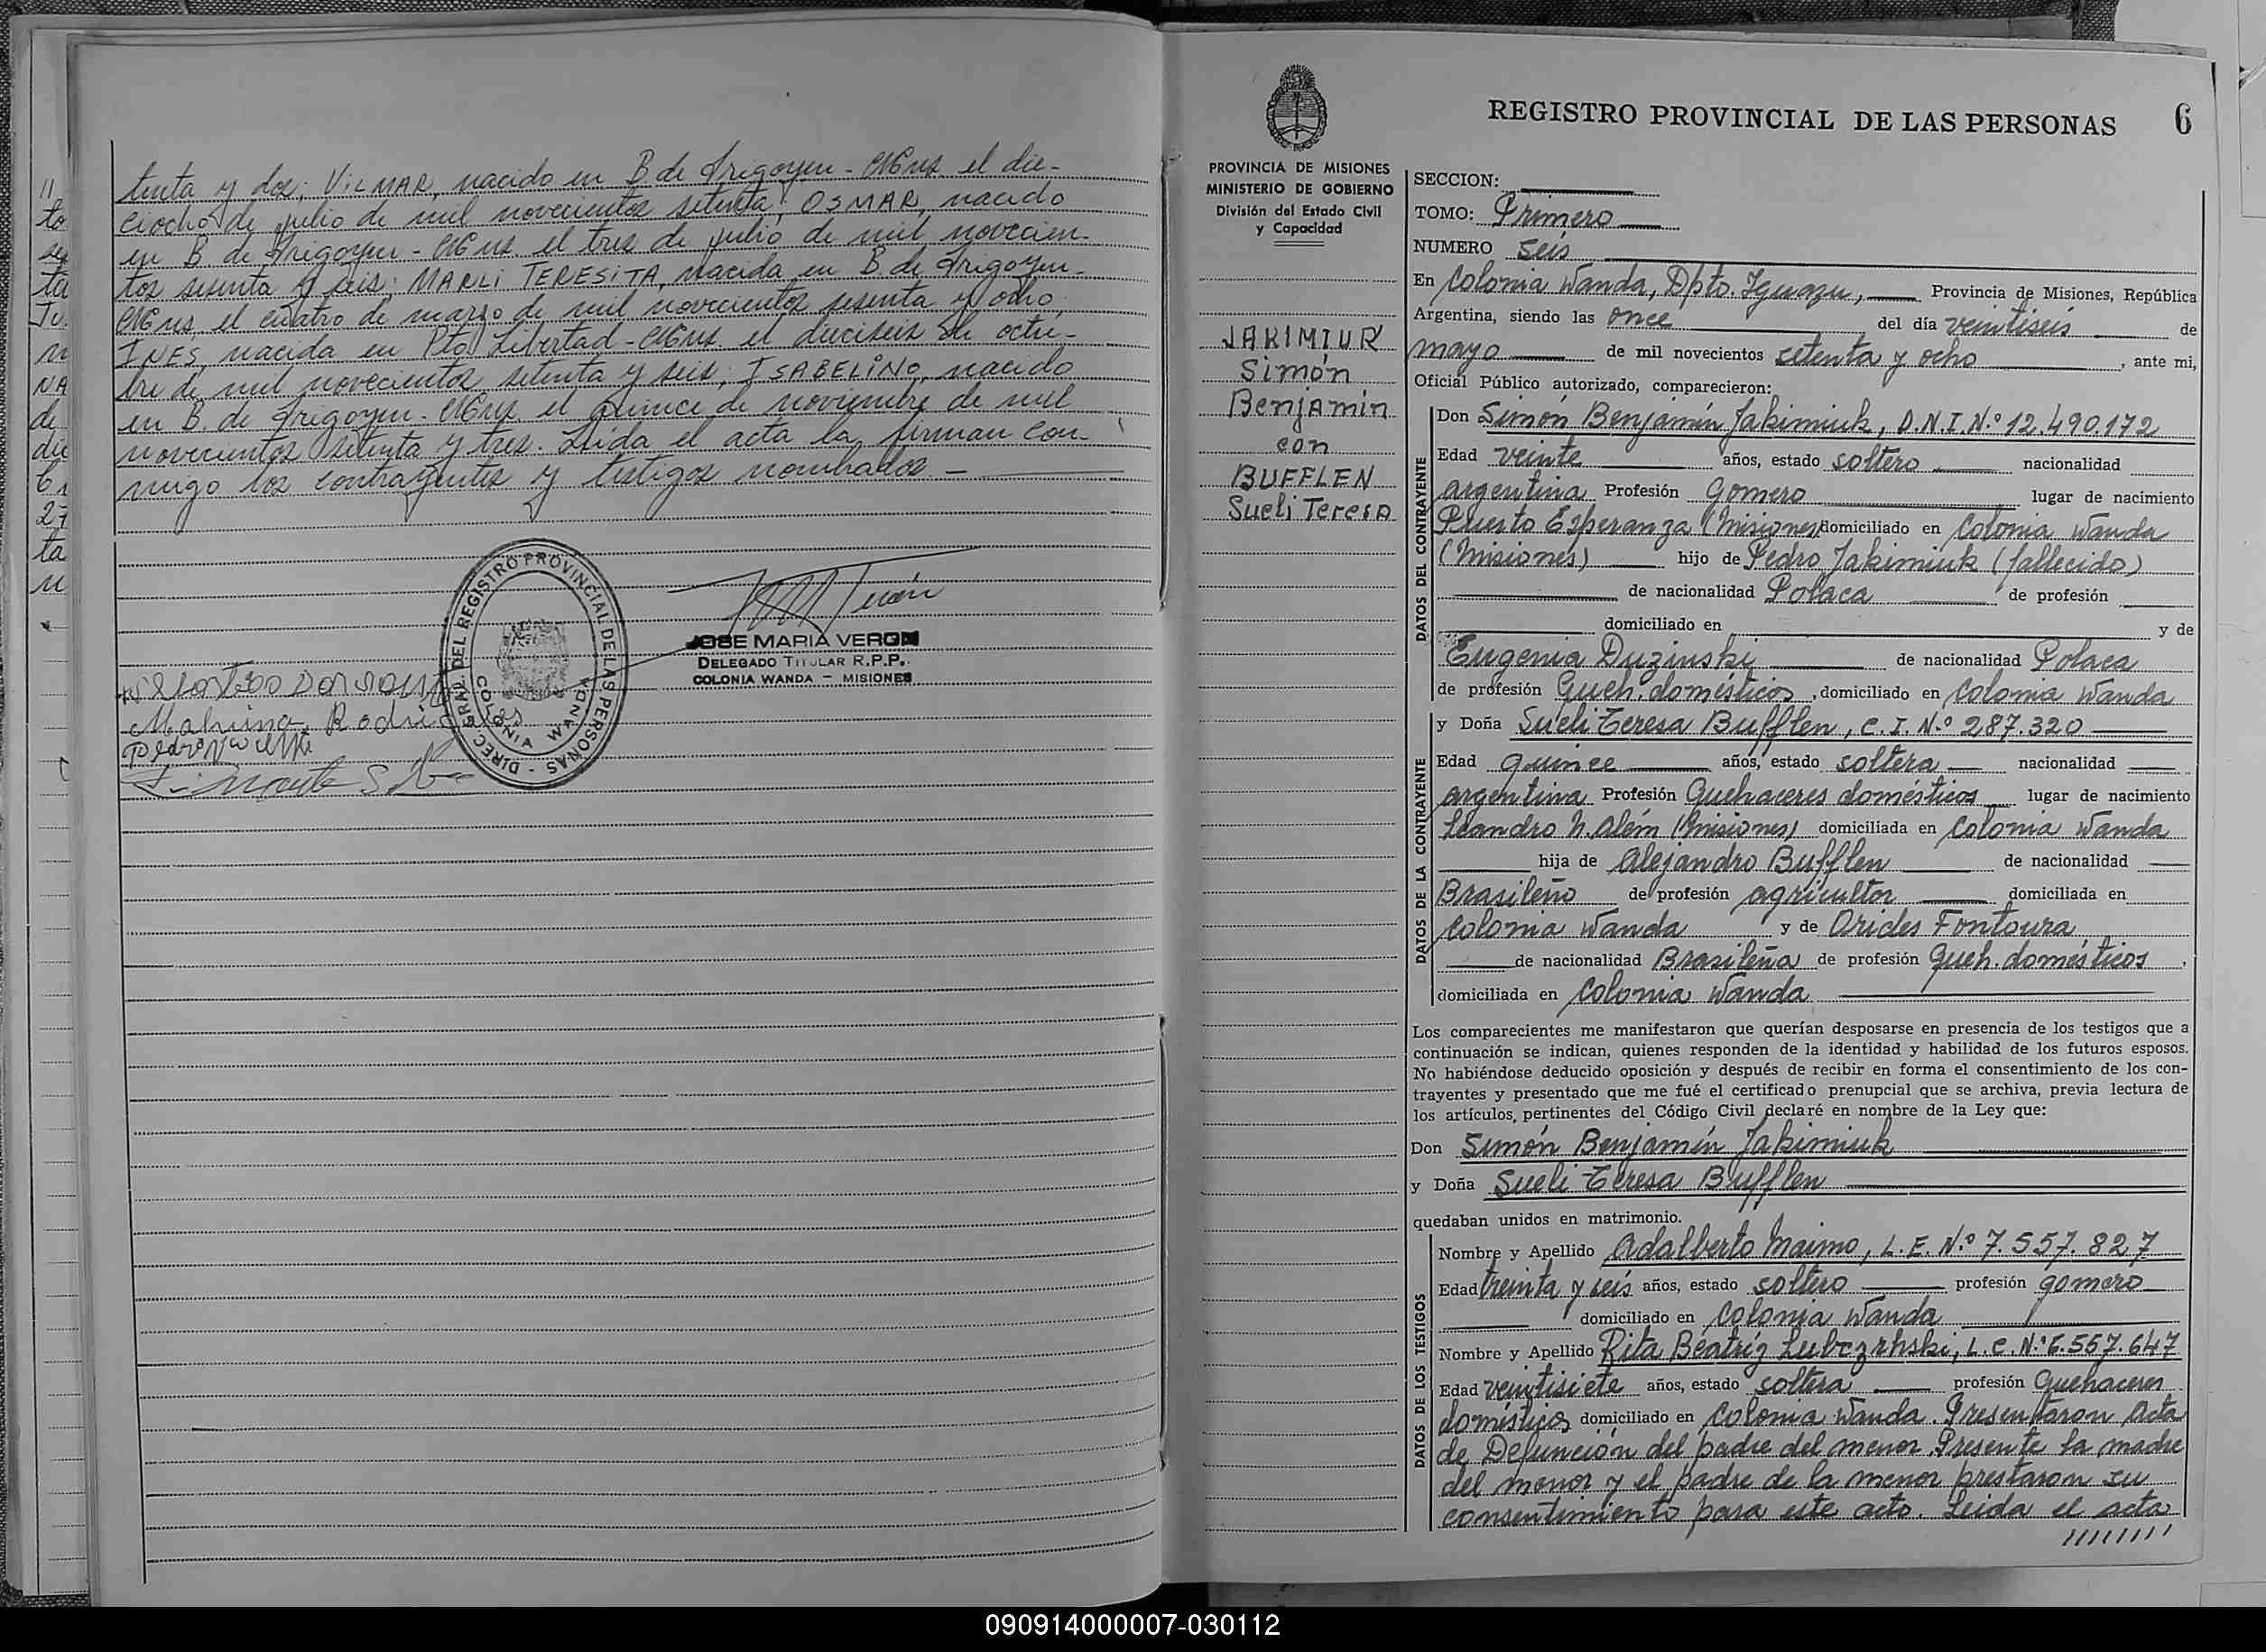 tenta y dos; VILMAR, nacido en B de Irigoyen - Mnes el die-
ciocho de julio de mil novecientos setenta; OSMAR, nacido
en B. de Irigoyen - Mnes el tres de julio de mil novecien-
tos sesenta y seis; MARLI TERESITA, nacida en B. de Irigoyen-
Mnes el cuatro de marzo de mil novecientos sesenta y ocho;
INES, nacida en Pto Libertad - Mnes. el dieciseis de octu-
bre de mil novecientos setenta y seis; ISABELINO, nacido
en B. de Irigoyen - Mnes el quince de noviembre de mil
novecientos setenta y tres. Leida el acta la firman con-
migo los contrayentes y testigos nombrados.
DIREC. GRAL. DEL REGISTRO PROVINCIAL DE LAS PERSONAS -
COLONIA WANDA
JOSE MARIA VERON
DELEGADO TITULAR R.P.P.
COLONIA WANDA - MISIONES
PROVINCIA DE MISIONES
MINISTERIO DE GOBIERNO
División del Estado Civil
y Capacidad
JAKIMIUK
Simón
Benjamín
con
BUFFLEN
Sueli Teresa
REGISTRO PROVINCIAL DE LAS PERSONAS 6
SECCION:
TOMO: Primero
NUMERO seis
En Colonia Wanda, Dpto. Iguazu, Provincia de Misiones, República
Argentina, siendo las once del día veintiseis de
mayo de mil novecientos setenta y ocho, ante mi,
Oficial Público autorizado, comparecieron:
DATOS DEL CONTRAYENTE
Don Simón Benjamín Jakimiuk, D.N.I.N.º 12.490.172
Edad veinte años, estado soltero nacionalidad
argentina Profesión Gomero lugar de nacimiento
Puerto Esperanza (Misiones) domiciliado en Colonia Wanda
(Misiones) hijo de Pedro Jakimiuk (fallecido)
de nacionalidad Polaca de profesión
domiciliado en y de
Eugenia Duzinski de nacionalidad Polaca
de profesión Queh. domésticos, domiciliado en Colonia Wanda
DATOS DE LA CONTRAYENTE
y Doña Sueli Teresa Bufflen, C.I.N.º 287.320
Edad quince años, estado soltera nacionalidad
argentina Profesión Quehaceres domésticos lugar de nacimiento
Leandro N. Além (Misiones) domiciliada en Colonia Wanda
hija de Alejandro Bufflen de nacionalidad
Brasileño de profesión agricultor domiciliada en
Colonia Wanda y de Arides Fontoura
de nacionalidad Brasileña de profesión Queh. domésticos,
domiciliada en Colonia Wanda
Los comparecientes me manifestaron que querían desposarse en presencia de los testigos que a
continuación se indican, quienes responden de la identidad y habilidad de los futuros esposos.
No habiéndose deducido oposición y después de recibir en forma el consentimiento de los con-
trayentes y presentado que me fué el certificado prenupcial que se archiva, previa lectura de
los artículos, pertinentes del Código Civil declaré en nombre de la Ley que:
Don Simón Benjamín Jakimiuk
y Doña Sueli Teresa Bufflen
quedaban unidos en matrimonio.
DATOS DE LOS TESTIGOS
Nombre y Apellido Adalberto Maimo, L.E.N.º 7.557.827
Edad treinta y seis años, estado soltero profesión gomero
domiciliado en Colonia Wanda
Nombre y Apellido Rita Beatriz, L.C.N.º 6.557.647
Edad veintisiete años, estado soltera profesión Quehaceres
domésticos domiciliado en Colonia Wanda. Presentaron Acta
de Defunción del padre del menor. Presente la madre
del menor y el padre de la menor prestaron su
consentimiento para este acto. Leida el acta
090914000007-030112